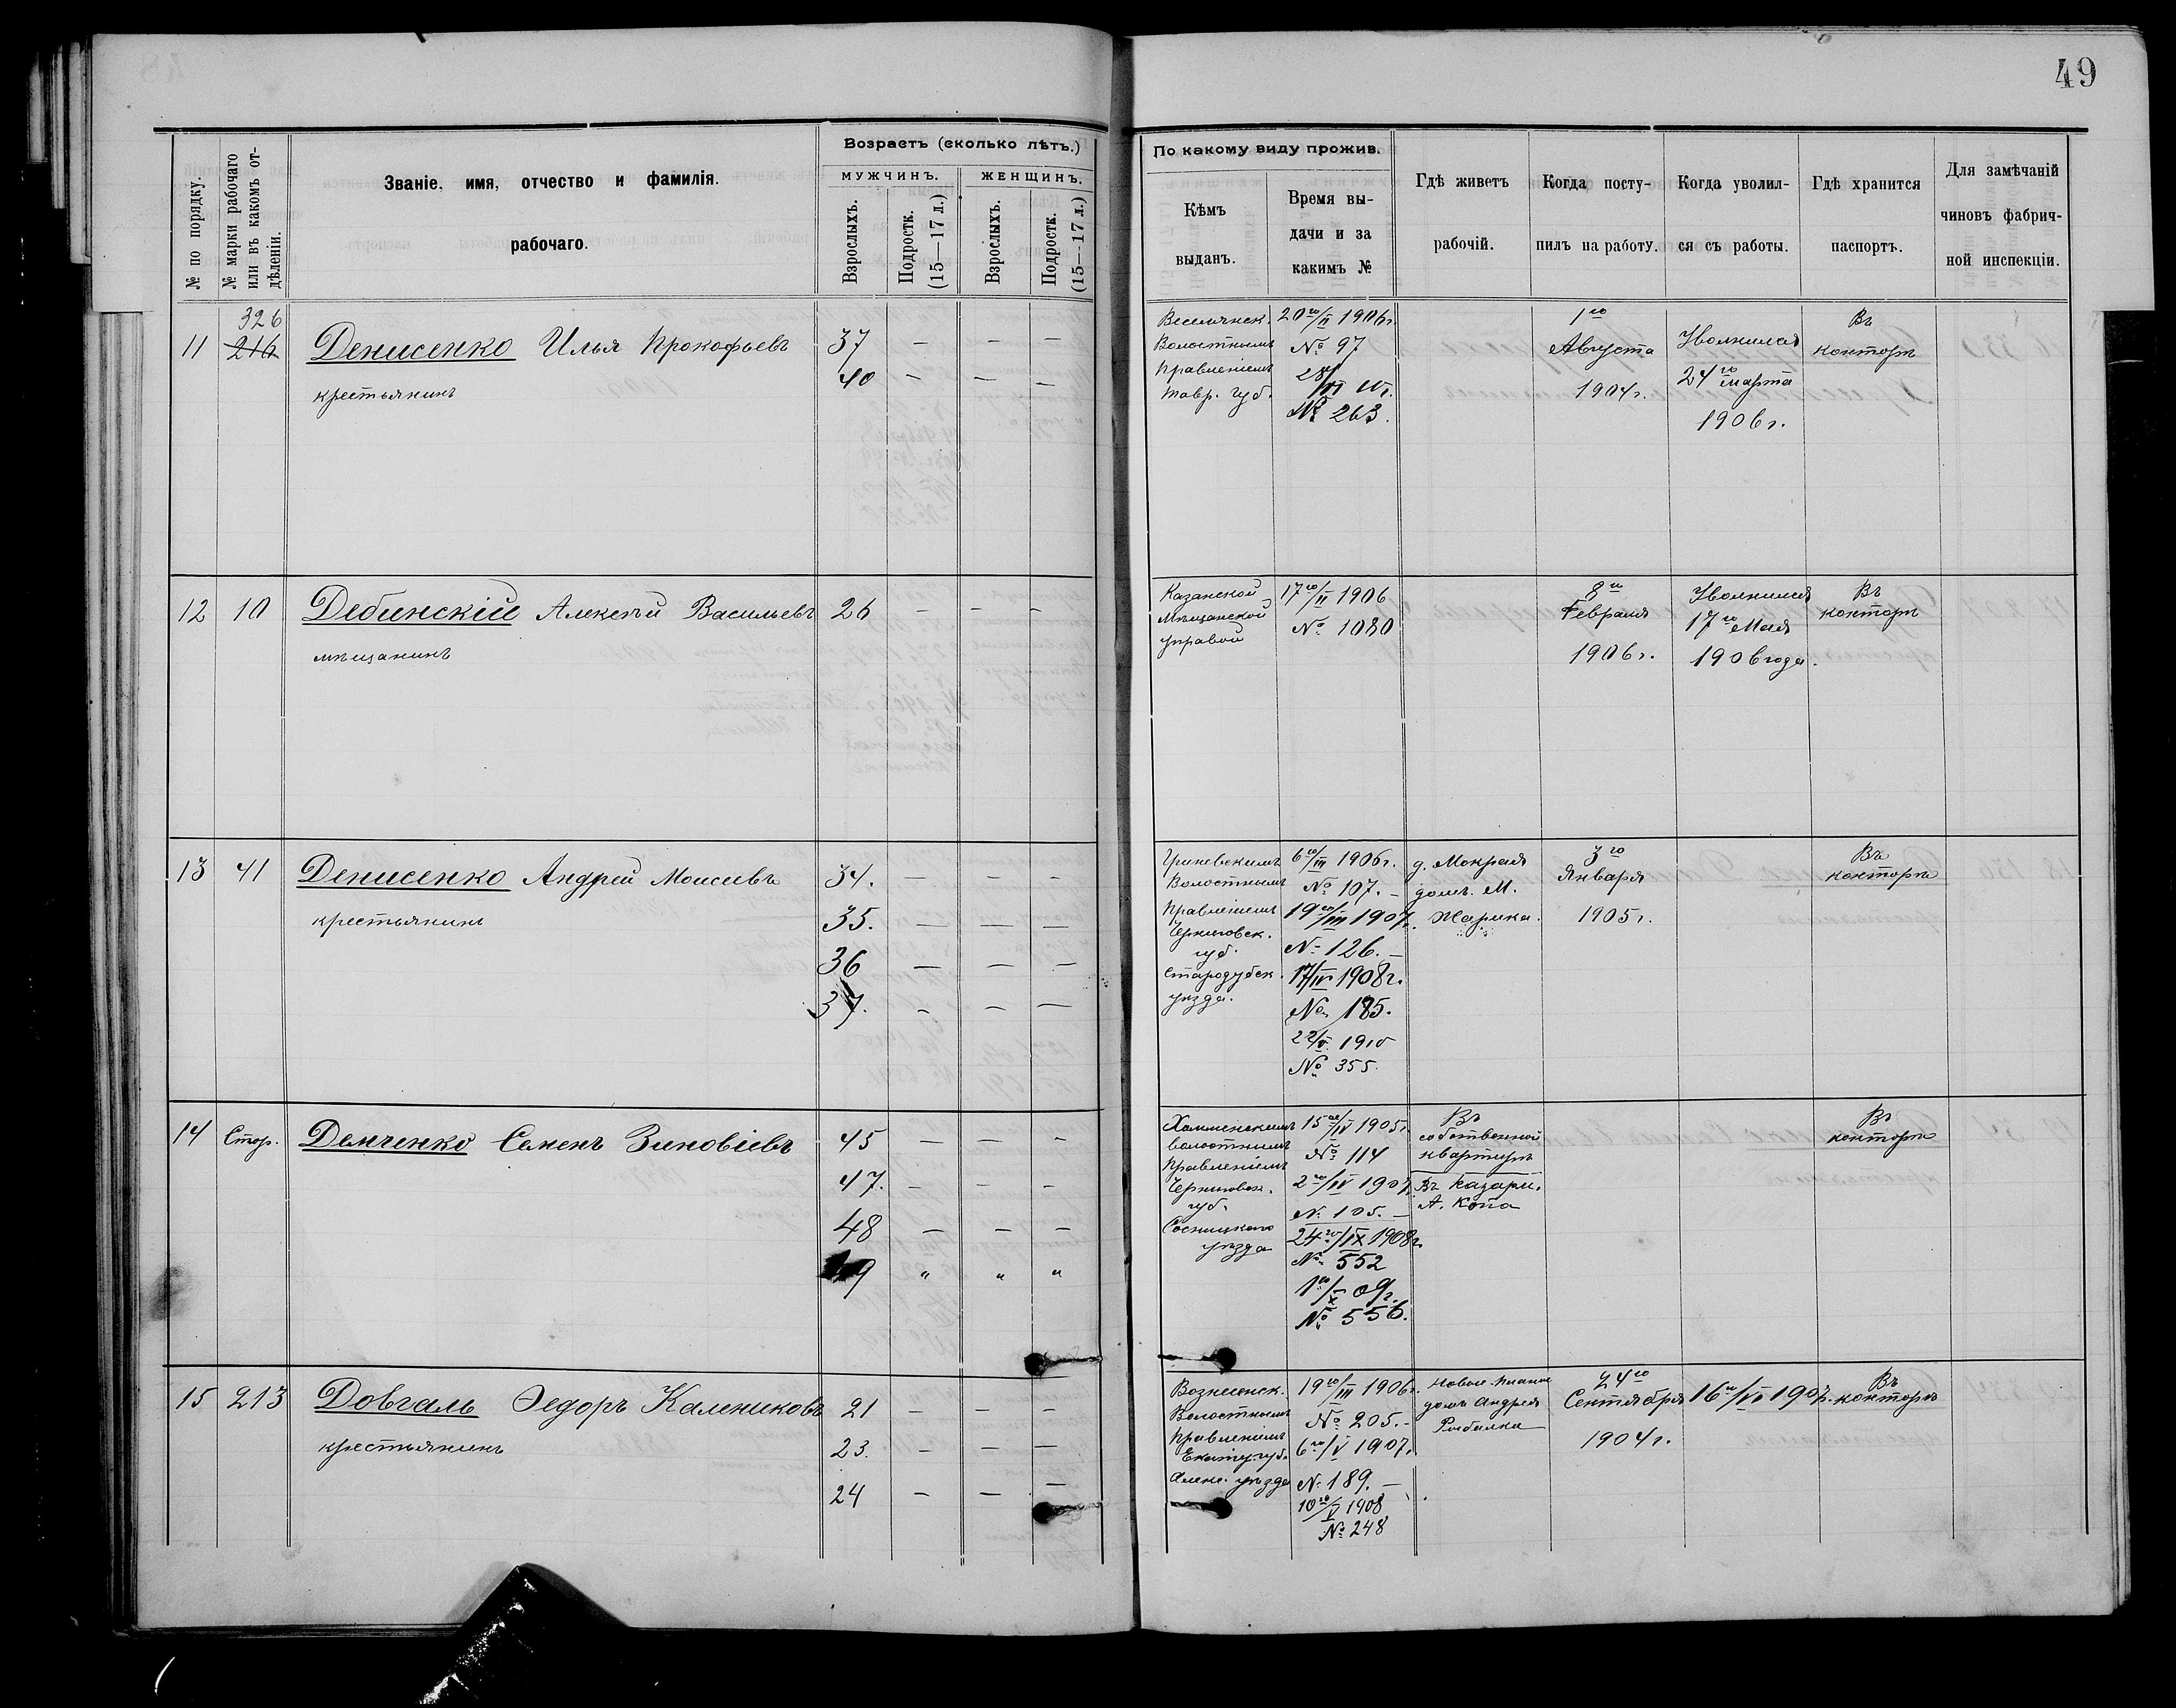 49
№ по порядку.
№ марки рабочаго или въ какомъ отдѣленіи.
Званіе, имя, отчество и фамилія
рабочаго.
Возрастъ (сколько лѣтъ.)
МУЖЧИНЪ.
ЖЕНЩИНЪ.
Взрослыхъ.
Подростк. (15—17 л.)
Взрослыхъ.
Подростк. (15—17 л.)
По какому виду прожив.
Кѣмъ
выданъ.
Время вы-
дачи и за
какимъ №
Гдѣ живетъ
рабочій.
Когда посту-
пилъ на работу.
Когда уволил-
ся съ работы.
Гдѣ хранится
паспортъ.
Для замѣчаній
чиновъ фабрич-
ной инспекціи.
326
11 216 Денисенко Илья Прокофьевъ 37 — — —
крестьянинъ
40 — — —
Веселянск.
Волостнымъ
Правленіемъ
Тавр. губ.
20го/II 1906г.
№ 97
№ 263.
1го
Августа
1904г.
Уволился
24го марта
1906г.
Въ
конторѣ
12 10 Дебинскій Алексѣй Васильевъ 26 — — —
мѣщанинъ
Казанской
Мѣщанской
управой
17го/II 1906
№ 1080
8го
Февраля
1906г.
Уволился
17го Мая
1906 года.
Въ
конторѣ
13 41 Денисенко Андрей Моисеевъ 34. — — —
крестьянинъ
35. — — —
36 — — —
37. — — —
Гриневскимъ
Волостнымъ
Правленіемъ
Черниговск.
губ.
Стародубск.
уѣзда.
6го/III 1906г.
№ 107. —
19го/III 1907г.
№ 126. —
17/IV 1908г.
№ 185.
22/V 1910
№ 355.
д. Мокрая
домъ. М.
Жарика.
3го
Января
1905г.
Въ
конторѣ
14 Стор. Демченко Семенъ Зиновіевъ 45 — — —
47. — — —
48 — — —
49 " " "
волостнымъ
Правленіемъ
Черниговск.
губ.
Сосницкаго
уѣзда
15го/IV 1905г.
№ 114
2го/IV 1907г.
№ 105. —
24го/IX 1908г.
№ 552
1го/X 09г.
№ 556.
Въ
собственной
квартирѣ
Въ казарм.
А. Копа
Въ
конторѣ
15 213 Довгаль Федоръ Калениковъ 21 — — —
крестьянинъ
23. — — —
24 — — —
Вознесенск.
Волостнымъ
Правленіемъ
Екатер. губ.
Алекс. уѣзда
19го/III 1906г.
№ 205. —
6го/V 1907г.
№ 189. —
10го/V 1908
№ 248
домъ Андрея
Рыбалка
24го
Сентября
1904г.
Въ
конторѣ